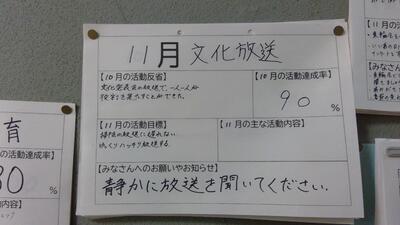 11月 文化放送
【10月の活動反省】
文化発表会の放送で、一人一人が
役割を果たすことができた。
【10月の活動達成率】
90 %
【11月の活動目標】
掃除の放送に遅れない。
ゆっくりハッキリ放送する。
【11月の主な活動内容】
【みなさんへのお願いやお知らせ】
静かに放送を聞いてください。
育
の活動達成率】
80 %
の主な活動内容】
【11月の
【10月の
【11月の
【みなさ